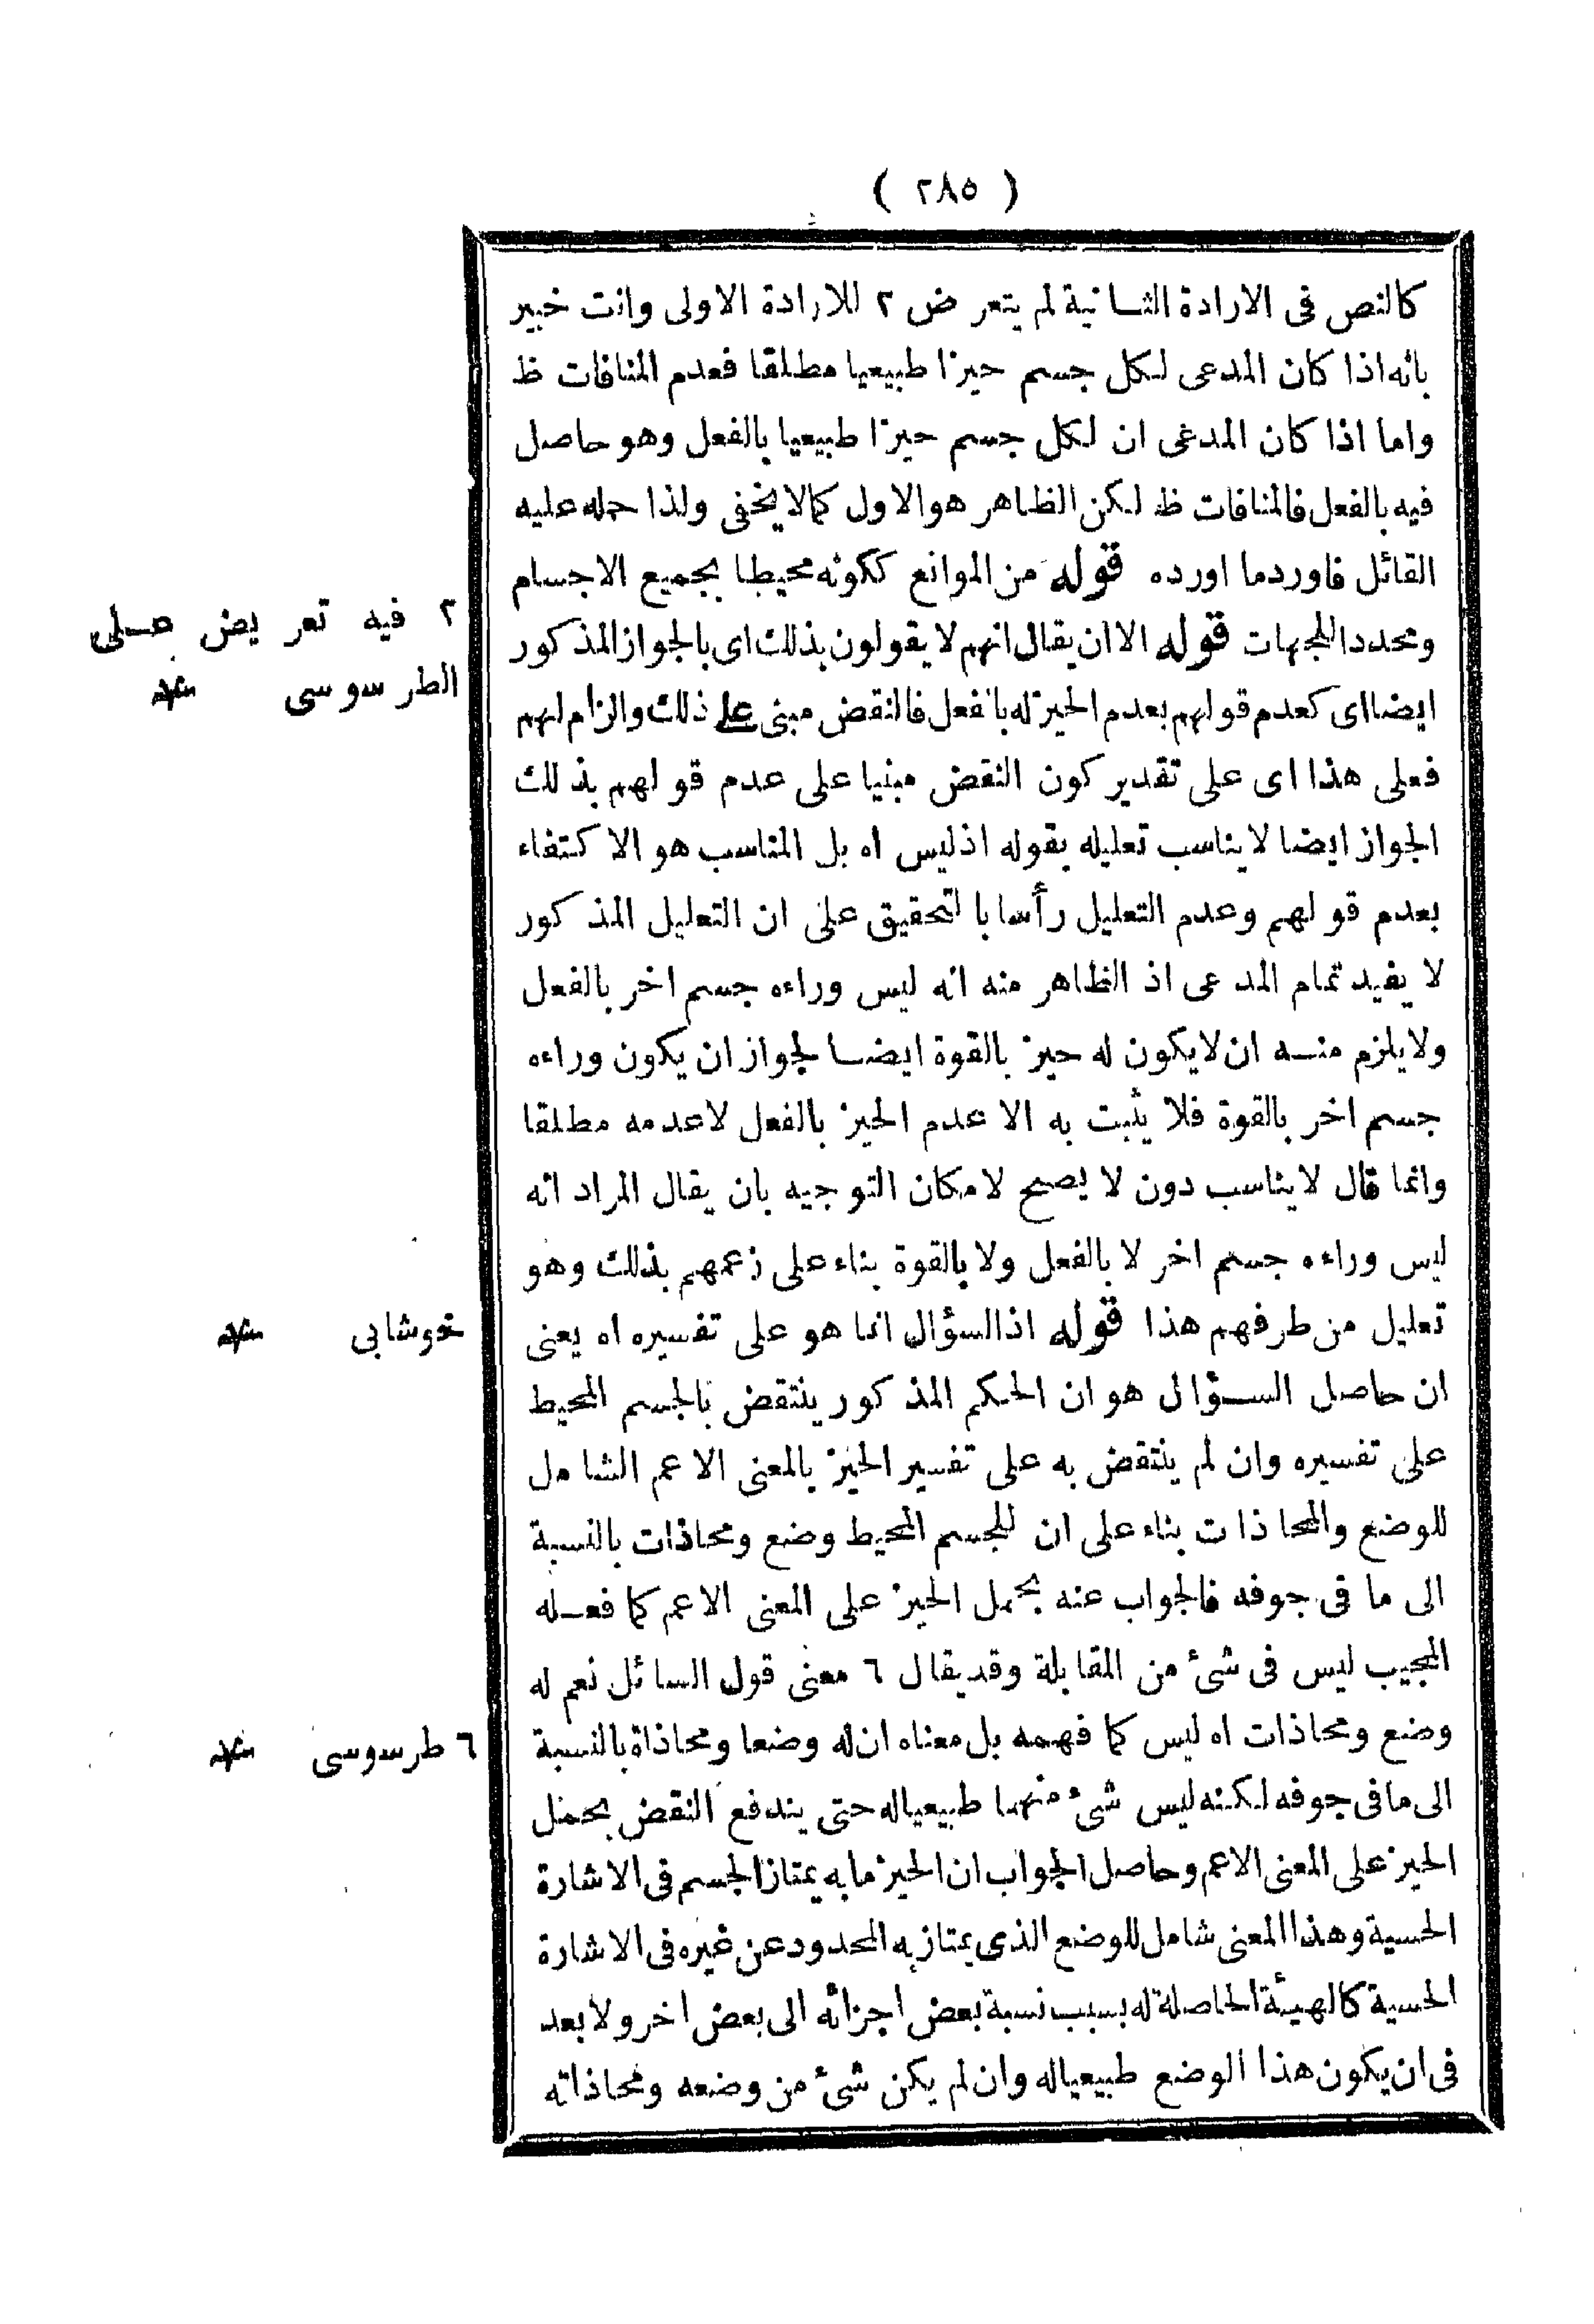 ( ٢٨٥ )
كالنص فى الارادة الثانية لم يتعرض ٢ للارادة الاولى وانت خبير
بانه اذا كان المدعى لكل جسم حيزا طبيعيا مطلقا فعدم المنافات ظ
واما اذا كان المدعى ان لكل جسم حيزا طبيعيا بالفعل وهو حاصل
فيه بالفعل فالمنافات ظ لكن الظاهر هو الاول كما لا يخفى ولذا حمله عليه
القائل فاورد ما اورده قوله من الموانع ككونه محيطا بجميع الاجسام
ومحددا للجهات قوله الا ان يقال انهم لا يقولون بذلك اى بالجواز المذكور
ايضا اى كعدم قولهم بعدم الحيز له بالفعل فالنقض مبنى على ذلك والزام لهم
فعلى هذا اى على تقدير كون النقض مبنيا على عدم قولهم بذلك
الجواز ايضا لا يناسب تعليله بقوله اذ ليس اه بل المناسب هو الاكتفاء
بعدم قولهم وعدم التعليل رأسا بالتحقيق على ان التعليل المذكور
لا يفيد تمام المدعى اذ الظاهر منه انه ليس وراءه جسم اخر بالفعل
ولا يلزم منه ان لا يكون له حيز بالقوة ايضا لجواز ان يكون وراءه
جسم اخر بالقوة فلا يثبت به الا عدم الحيز بالفعل لا عدمه مطلقا
وانما قال لا يناسب دون لا يصح لامكان التوجيه بان يقال المراد انه
ليس وراءه جسم اخر لا بالفعل ولا بالقوة بناء على زعمهم بذلك وهو
تعليل من طرفهم هذا قوله اذ السؤال انما هو على تفسيره اه يعنى
ان حاصل السؤال هو ان الحكم المذكور ينتقض بالجسم المحيط
على تفسيره وان لم ينتقض به على تفسير الحيز بالمعنى الاعم الشامل
للوضع والمحاذات بناء على ان للجسم المحيط وضع ومحاذات بالنسبة
الى ما فى جوفه فالجواب عنه بحمل الحيز على المعنى الاعم كما فعله
المجيب ليس فى شئ من المقابلة وقد يقال ٦ معنى قول السائل نعم له
وضع ومحاذات اه ليس كما فهمه بل معناه ان له وضعا ومحاذاة بالنسبة
الى ما فى جوفه لكنه ليس شئ منهما طبيعيا له حتى يندفع النقض بحمل
الحيز على المعنى الاعم وحاصل الجواب ان الحيز ما به يمتاز الجسم فى الاشارة
الحسية وهذا المعنى شامل للوضع الذى يمتاز به المحدود عن غيره فى الاشارة
الحسية كالهيئة الحاصلة له بسبب نسبة بعض اجزائه الى بعض اخر ولا بعد
فى ان يكون هذا الوضع طبيعيا له وان لم يكن شئ من وضعه ومحاذاته
٢ فيه تعريض على
الطرسوسى
خوشابى
٦ طرسوسى